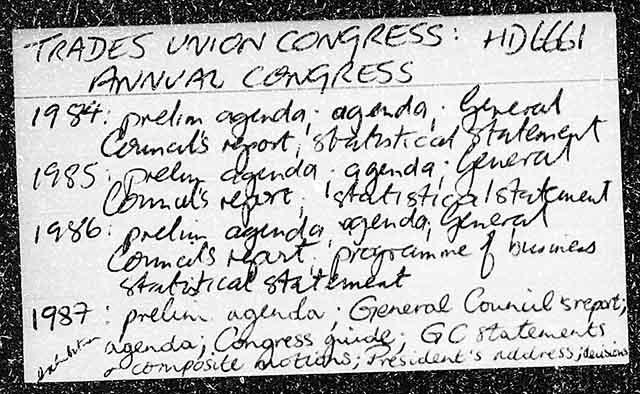 TRADES UNION CONGRESS: HD6661
ANNUAL CONGRESS
1984: prelim agenda; agenda; General
Council's report; statistical statement
1985: prelim agenda; agenda; General
Council's report; statistical statement
1986: prelim agenda; agenda; General
Council's report; programme of business
statistical statement
1987: prelim agenda; General Council's report;
agenda; Congress guide; GC statements
& composite motions; President's address; decisions